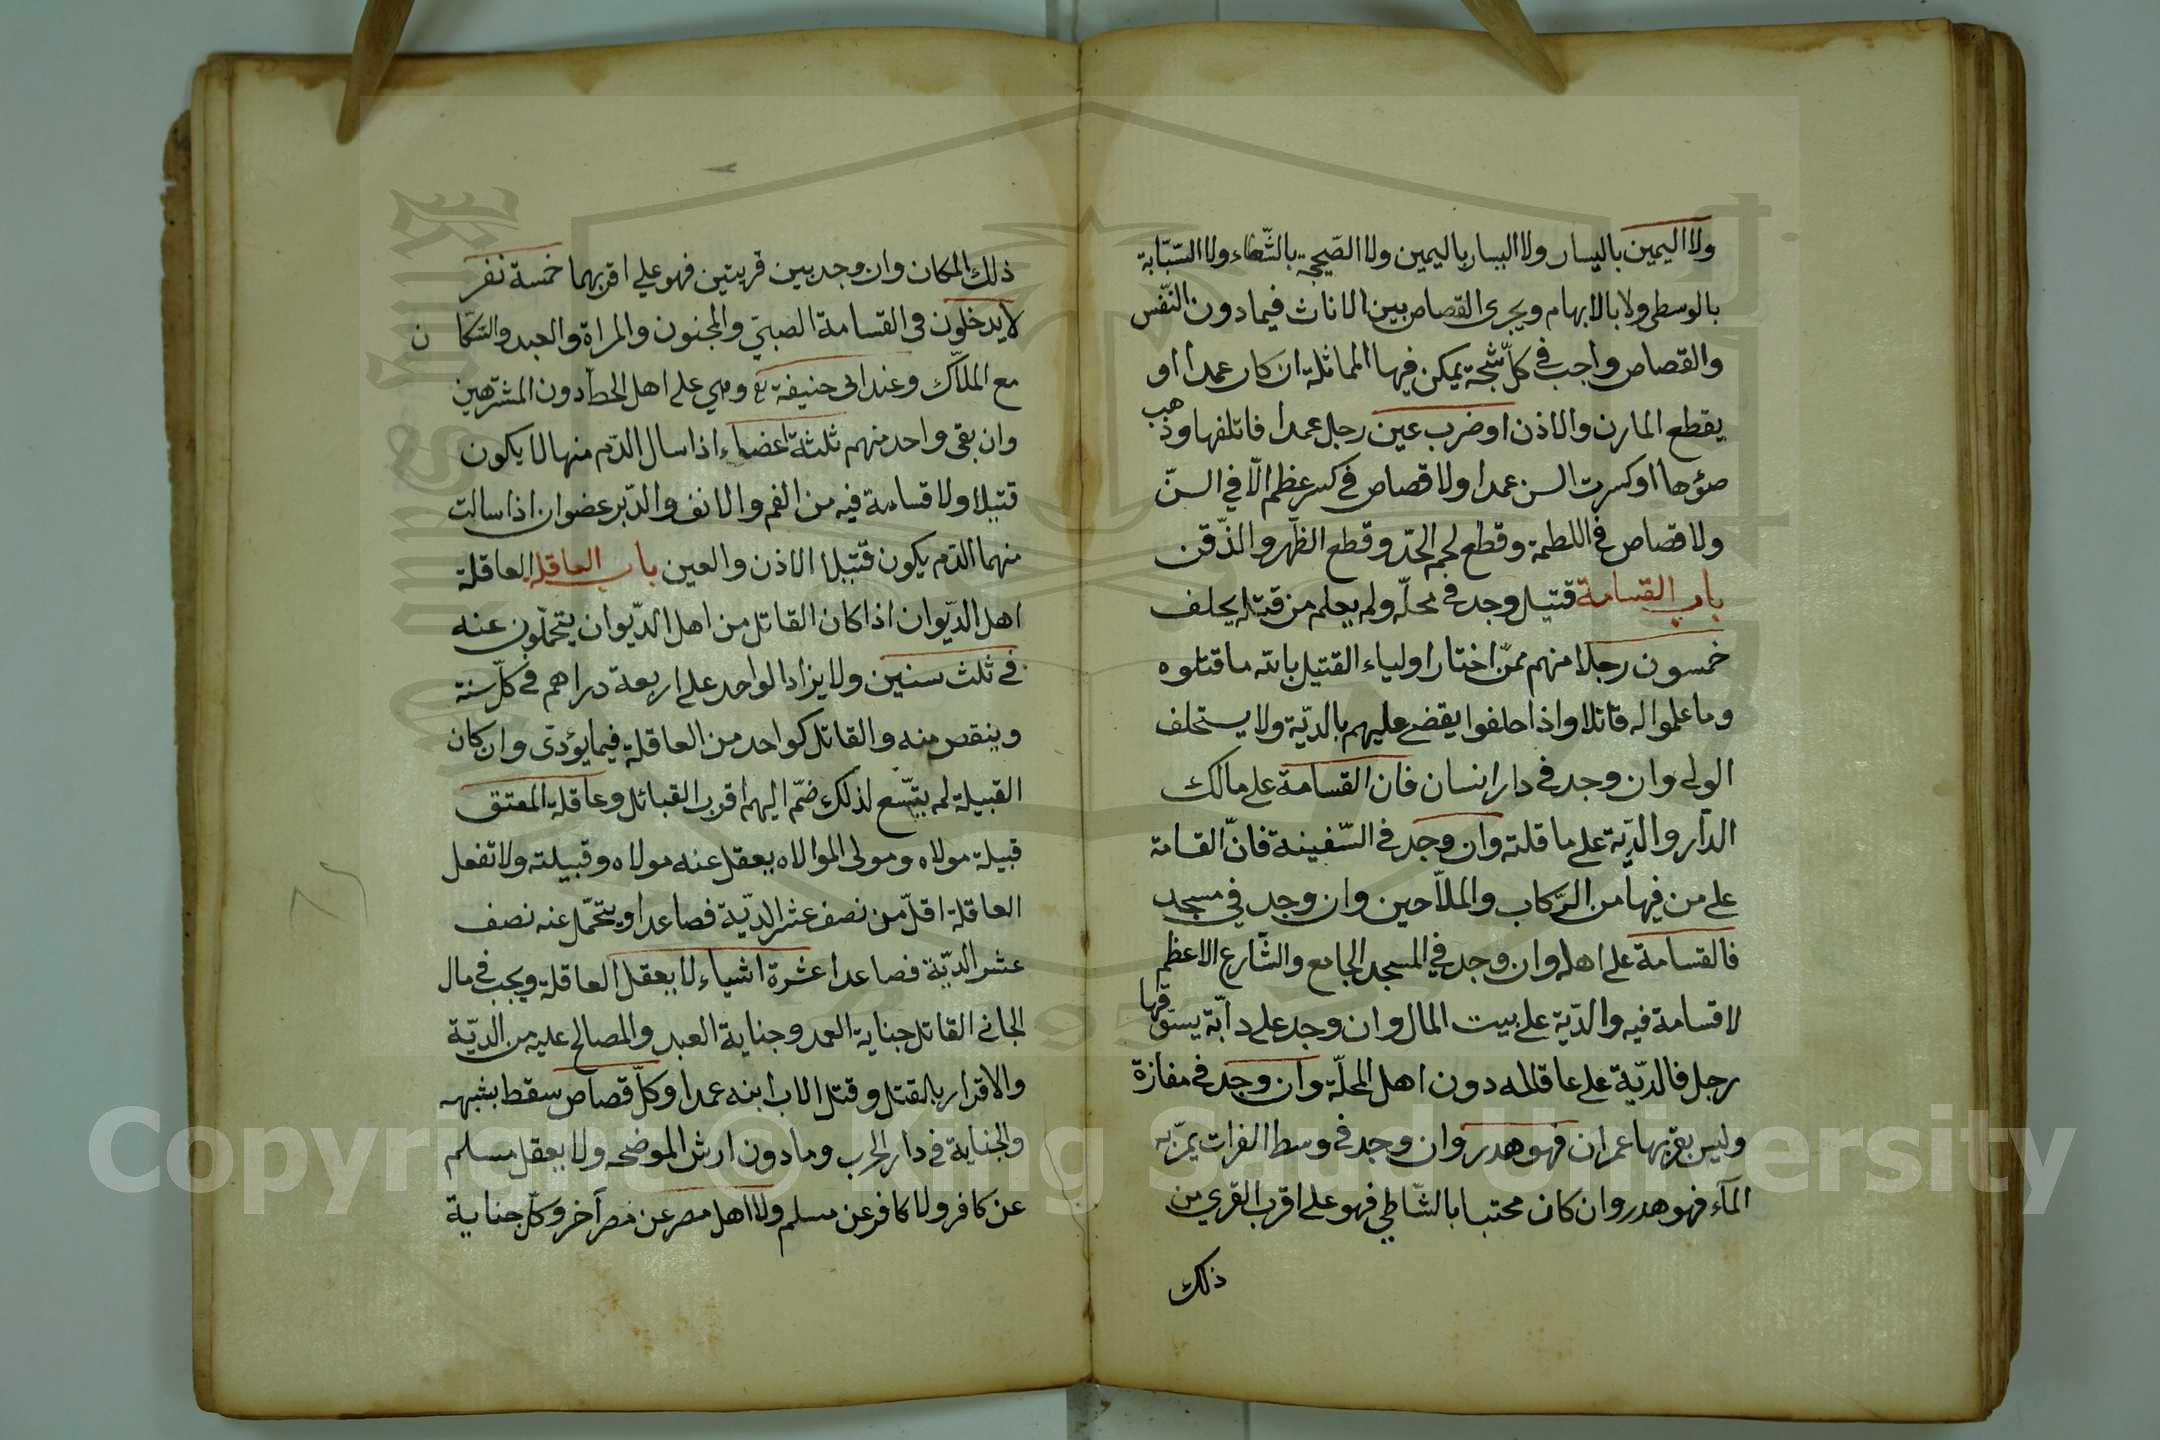 ولا اليمين باليسار ولا اليسار باليمين ولا الصّحيحة بالشّلاء ولا السّبّابة
بالوسطى ولا بالابهام ويجرى القصاص بين الاناث فيما دون النّفس
والقصاص واجب فى كلّ شجة يمكن فيها المماثلة ان كان عمدا او
يقطع المارن والاذن او ضرب عين رجل عمدا فاتلفها وذهب
ضوؤها او كسرت السن عمدا ولا قصاص فى كسر عظم الّا فى السنّ
ولا قصاص فى اللطمة وقطع لحم الخدّ وقطع الظهر والذّقن
باب القسامة قتيل وجد فى محلّه ولم يعلم من قتله يحلف
خمسون رجلا منهم ممّن اختار اولياء القتيل بالله ما قتلوه
وما علموا له قاتلا واذا حلفوا يقضى عليهم بالديّة ولا يستحلف
الولى وان وجد فى دار انسان فان القسامة على مالك
الدّار والديّة على عاقلته وان وجد فى السّفينة فانّ القسامة
على من فيها من الرّكاب والملاّحين وان وجد فى مسجد
فالقسامة على اهله وان وجد فى المسجد الجامع والشّارع الاعظم
لا قسامة فيه والديّة على بيت المال وان وجد على دآبّة يسوقها
رجل فالديّة على عاقلته دون اهل المحلّة وان وجد فى مفازة
وليس بقربها عمران فهو هدر وان وجد فى وسط الفرات يمرّ به
المآء فهو هدر وان كان محتبسا بالشّاطى فهو على اقرب القرى من
ذلك
ذلك المكان وان وجد بين قريتين فهو على اقربهما خمسة نفر
لا يدخلون فى القسامة الصبىّ والمجنون والمراة والعبد والسّكان
مع الملاّك وعند ابى حنيفة وهى على اهل الخطة دون المشترين
وان بقى واحد منهم ثلثة اعضاء اذا سال الدّم منها لا يكون
قتيلا ولا قسامة فيه من الفم والانف والدّبر عضوان اذا سالت
منهما الدّم يكون قتيلا الاذن والعين باب العاقلة العاقلة
اهل الديّوان اذا كان القاتل من اهل الديّوان يتحمّلون عنه
فى ثلث سنين ولا يزاد الواحد على اربعة دراهم فى كلّ سنة
وينقص منه والقاتل كواحد من العاقلة فيما يؤدّى وان كان
القبيلة لم يتّسع لذلك ضمّ اليهم اقرب القبائل وعاقلة المعتق
قبيلة مولاه ومولى الموالاه يعقل عنه مولاه وقبيلته ولا تفعل
العاقلة اقلّ من نصف عشر الديّة فصاعدا ويتحمّل عنه نصف
عشر الديّة فصاعدا عشرة اشياء لا يعقل العاقلة ويجب فى مال
الجانى القاتل جناية العمد وجناية العبد والمصالح عليه من الديّة
والاقرار بالقتل وقتل الاب ابنه عمدا وكلّ قصاص سقط بشبهه
والجناية فى دار الحرب وما دون ارش الموضحه ولا يعقل مسلم
عن كافر ولا كافر عن مسلم ولا اهل مصر عن مصر آخر وكلّ جناية
Copyright © King Saud University